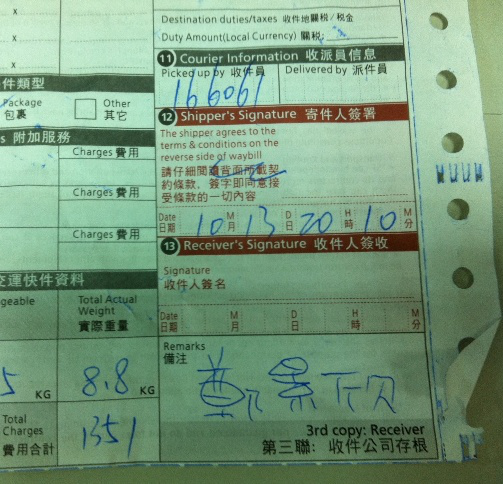 x
Destination duties/taxes 收件地關税/税金
x
Duty Amount(Local Currency) 關税:
⑪ Courier Information 收派員信息
Picked up by 收件員 Delivered by 派件員
166061
件類型
Package 包裹
Other 其它
⑫ Shipper's Signature 寄件人簽署
The shipper agrees to the
terms & conditions on the
reverse side of waybill
請仔細閲讀背面所載契
約條款，簽字即同意接
受條款的一切內容
s 附加服務
Charges 費用
Charges 費用
Charges 費用
Date 日期 10 M 月 13 D 日 20 H 時 10 M 分
⑬ Receiver's Signature 收件人簽收
Signature
收件人簽名
Date 日期 M 月 D 日 H 時 M 分
交運快件資料
geable
Total Actual
Weight
實際重量
5 KG 8.8 KG
Total
Charges
費用合計
1351
Remarks
備注
3rd copy: Receiver
第三聯：收件公司存根